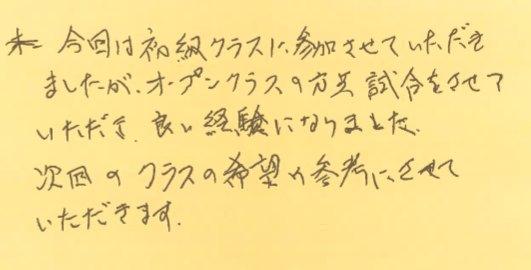 ※ 今回は初級クラスに参加させていただき
ましたが、オープンクラスの方と試合をさせて
いただき、良い経験になりました。
次回のクラスの希望の参考にさせて
いただきます。